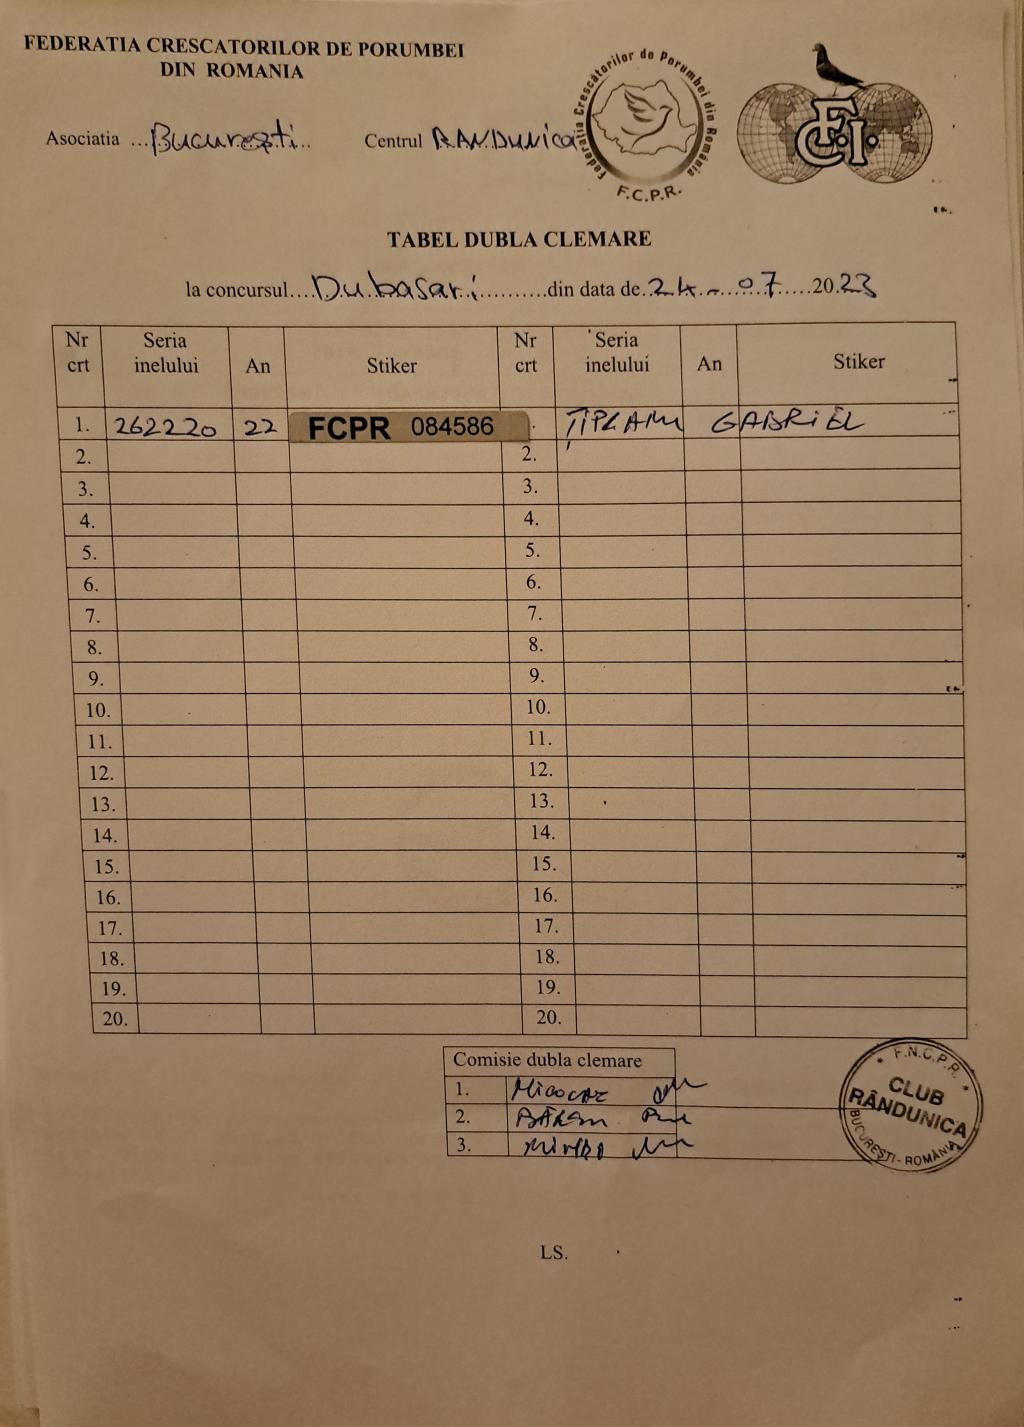 FEDERATIA CRESCATORILOR DE PORUMBEI
DIN ROMANIA
Asociatia ...Bucureşti..
Centrul RANDUNICA
Federatia Crescătorilor de Porumbei din România
F.C.P.R.
FCI
TABEL DUBLA CLEMARE
la concursul....Dubasari..........din data de.24-.07.....20.23
Nr crt Seria inelului An Stiker Nr crt Seria inelului An Stiker
1. 262220 22 FCPR 084586 . GABRIEL
2. 2.
3. 3.
4. 4.
5. 5.
6. 6.
7. 7.
8. 8.
9. 9.
10. 10.
11. 11.
12. 12.
13. 13.
14. 14.
15. 15.
16. 16.
17. 17.
18. 18.
19. 19.
20. 20.
Comisie dubla clemare
1.
2.
3.
F.N.C.P.R.
CLUB
RÂNDUNICA
BUCUREŞTI - ROMÂNIA
LS.